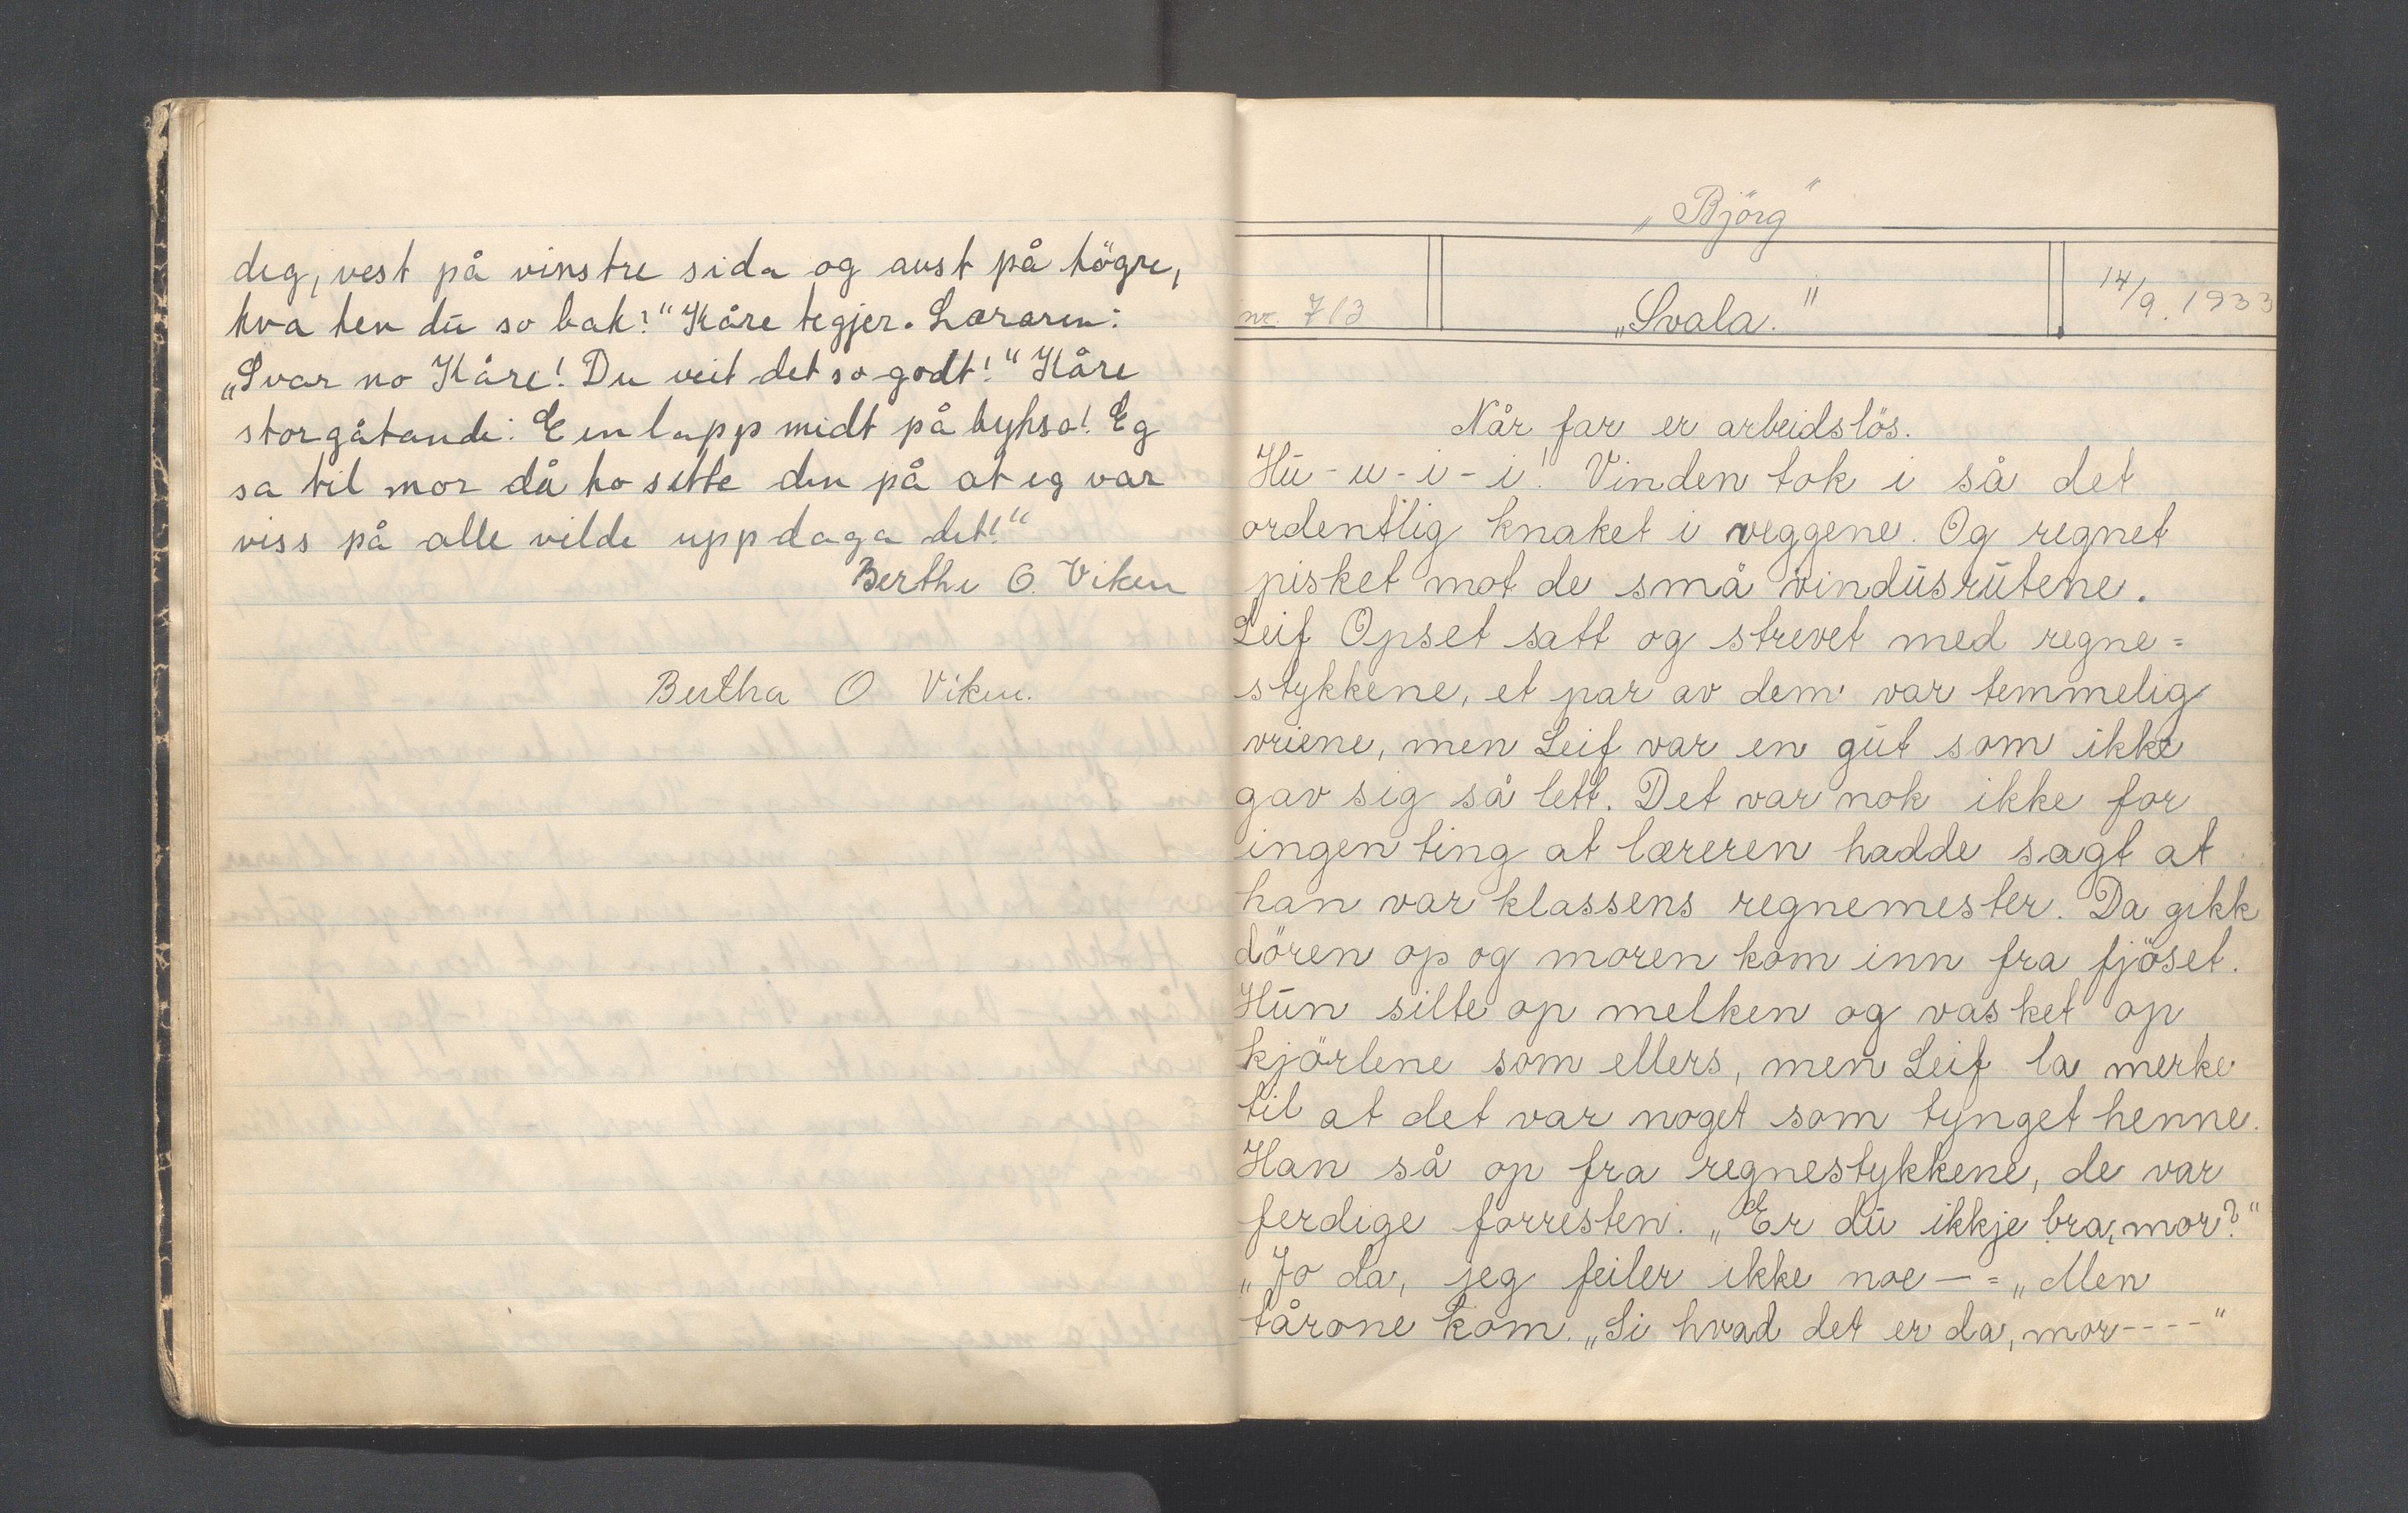 deg, vest på vinstre sida og aust på högre,
kva hev du so bak?" Kåre tegjer. Læraren:
„Svar no Kåre! Du veit det so godt!" Kåre
storgåtande: Ein lapp midt på bukso! Eg
sa til mor då ho sette den på at eg var
viss på alle vilde uppdaga det!"
Berthe O. Viken
Bertha O Viken.
„Björg"
nr. 7/3
„Svala."
14/9. 1933
Når far er arbeidslös.
Hu-u-i-i! Vinden tok i så det
ordentlig knaket i veggene. Og regnet
pisket mot de små vindusrutene.
Leif Opset satt og strevet med regne=
stykkene, et par av dem var temmelig
vriene, men Leif var en gut som ikke
gav sig så lett. Det var nok ikke for
ingen ting at læreren hadde sagt at
han var klassens regnemester. Da gikk
dören op og moren kom inn fra fjöset.
Hun silte op melken og vasket op
kjörlene som ellers, men Leif la merke
til at det var noget som tynget henne.
Han så op fra regnestykkene, de var
ferdige forresten. „Er du ikkje bra, mor?"
„Jo da, jeg feiler ikke noe —= „Men
tårone kom. „Si hvad det er da, mor----"